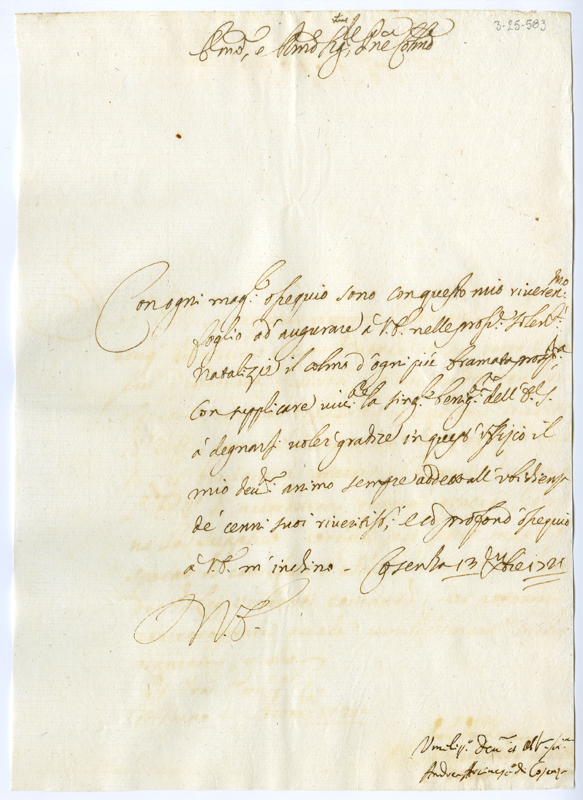 3-25-583
Emo, e Rmo Sig.re, Pne Colmo
Con ogni mag.r ossequio sono con questo mio riveren.mo
foglio ad'augurare à V.E. nelle pross.e solen.tà
Natalizie il colmo d'ogni più bramata prosp.tà,
con supplicare la sing.r benig.tà dell'E.V.
à degnarsi voler gradire in quest'offizio il
mio animo sempre addetto all'ubidienza
de' cenni suoi riveritiss.i, e co profond'ossequio
à V.E. m'inchino - Cosenza 13 Xbre 1721
V.E.
Umiliss.o
Andrea Arcivesc.o di Cosenza